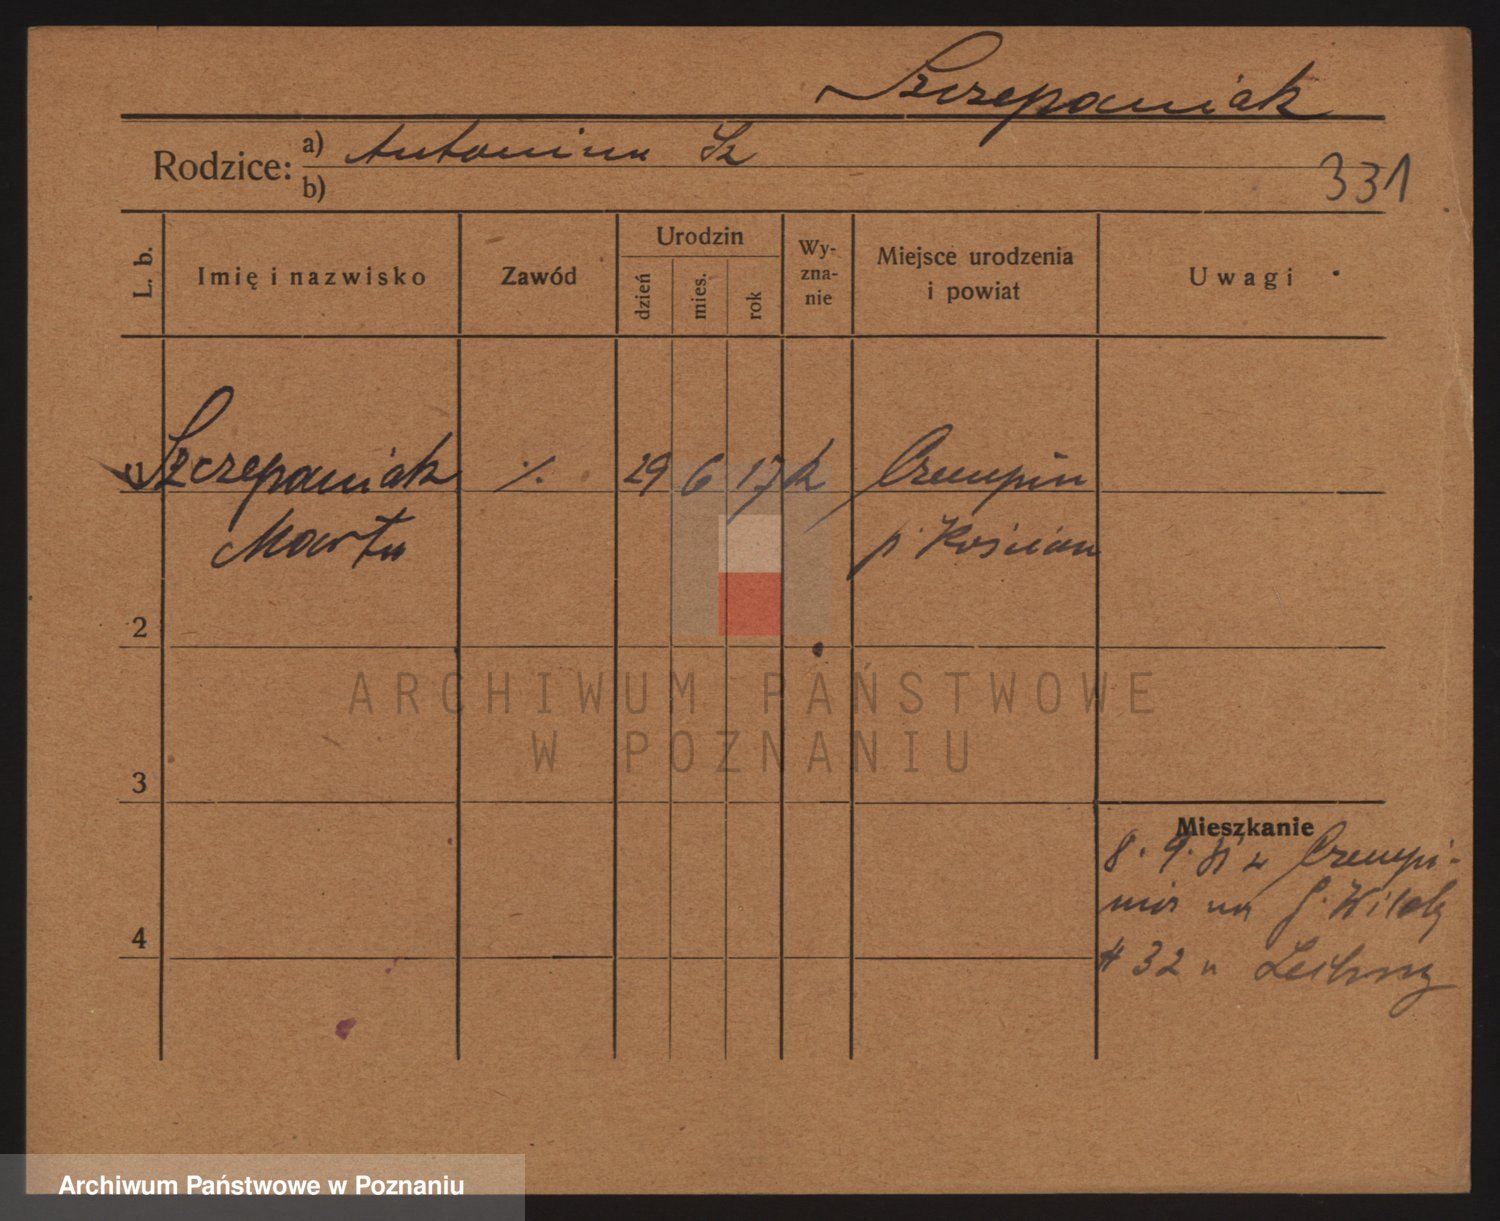 Szczepaniak
Rodzice: a) Antonina Sz
b)
331
L. b.
Imię i nazwisko
Zawód
Urodzin
dzień
mies.
rok
Wy-
zna-
nie
Miejsce urodzenia
i powiat
Uwagi
Szczepaniak ./. 29 6 17 k Czempiń
Marta p. Kościan
2
3
4
Mieszkanie
8. 9. z Czempi-
nia na G. Wildę
# 32 u
ARCHIWUM PAŃSTWOWE
W POZNANIU
Archiwum Państwowe w Poznaniu